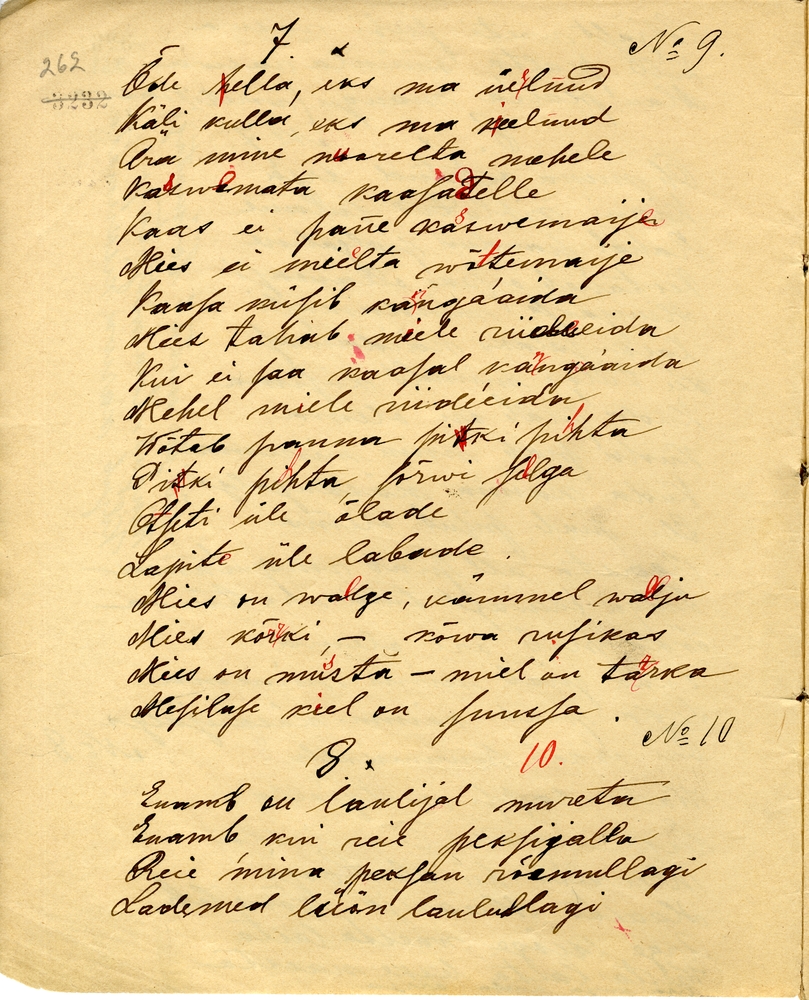 7.
№ 9.
262
3292
Õde hella, eks ma üelnud
Käli kulla, eks ma üelnud
Ära mine noorelta mehele
Kaswamata kaasatelle
Kaas ei panne kaswemaije
Mies ei mielta wõttemaije
Kaasa küsib kangaaida
Mies tahab miele riideeida
Kui ei saa kaasal kangaaida
Mehel miele riideeida
Wõtab panna pitki pihta
Pitki pihta, sõrwi selga
Otseti üle õlade
Lapite üle labude.
Mies on walge, kämmel walju
Mies kõrki, – kõwa rusikas
Mies on musta – miel on tarka
Mesiluse kiel on suussa.
№ 10
8.
10.
Enamb on laulijal mureta
Enamb kui reie peksijalla
Reie mina peksan rõemullagi
Lademed lüön laulullagi